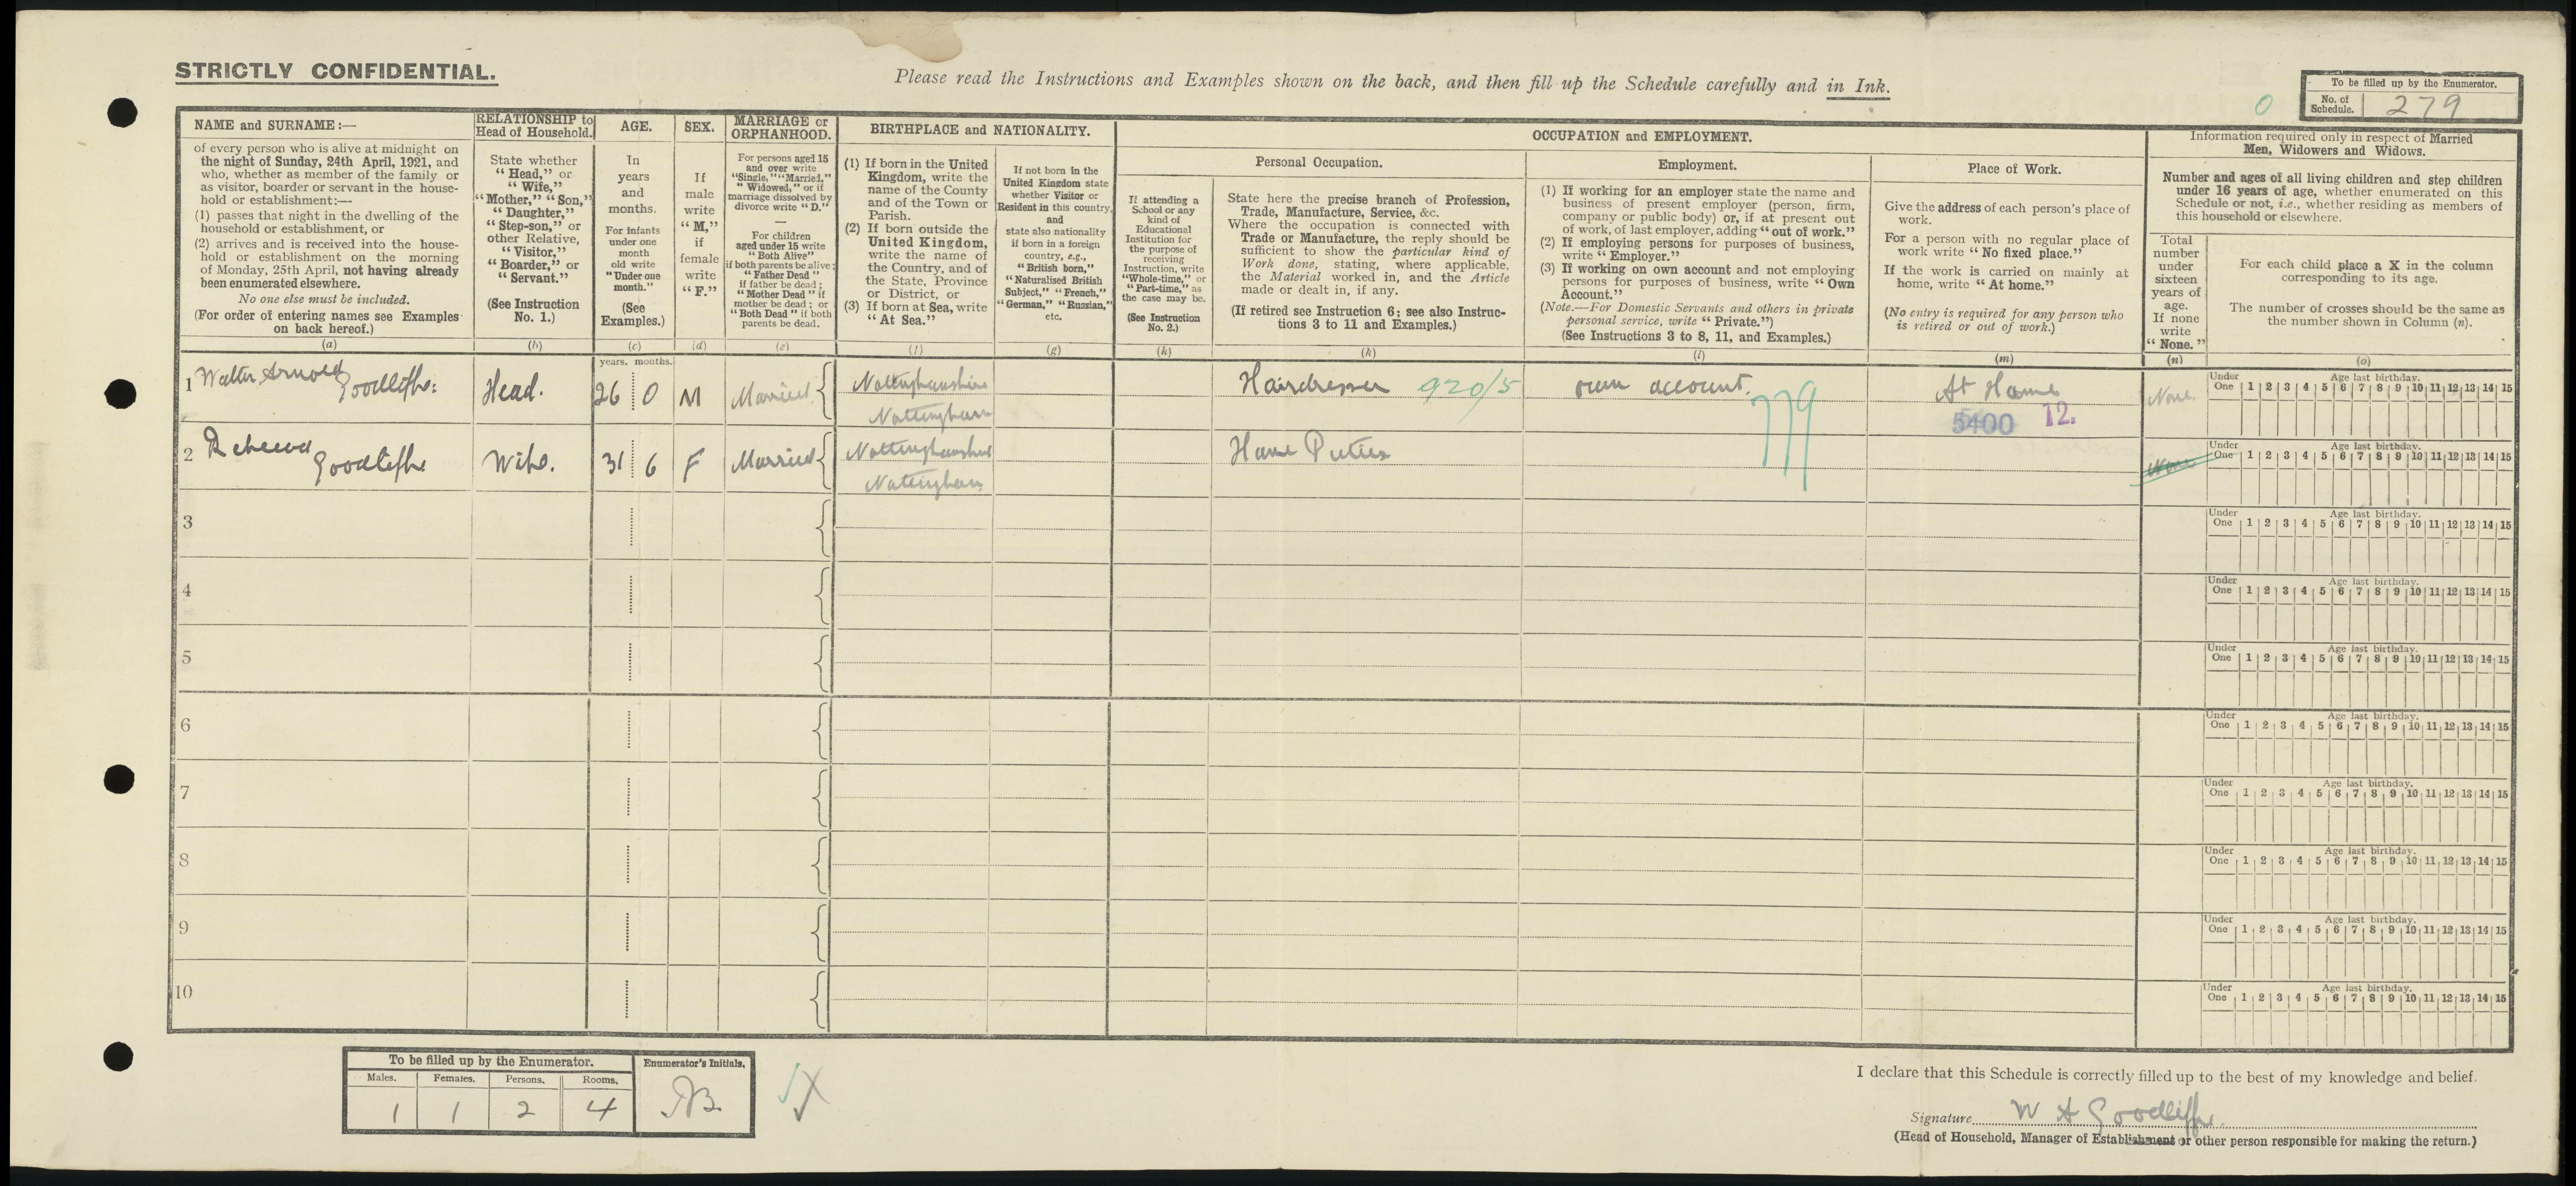 STRICTLY CONFIDENTIAL.
Please read the Instructions and Examples shown on the back, and then fill up the Schedule carefully and in Ink.
To be filled up by the Enumerator.
No. of Schedule. 279
0
NAME and SURNAME:—
of every person who is alive at midnight on
the night of Sunday, 24th April, 1921, and
who, whether as member of the family or
as visitor, boarder or servant in the house-
hold or establishment:—
(1) passes that night in the dwelling of the
household or establishment, or
(2) arrives and is received into the house-
hold or establishment on the morning
of Monday, 25th April, not having already
been enumerated elsewhere.
No one else must be included.
(For order of entering names see Examples
on back hereof.)
(a)
RELATIONSHIP to
Head of Household.
State whether
"Head," or
"Wife,"
"Mother," "Son,"
"Daughter,"
"Step-son," or
other Relative,
"Visitor,"
"Boarder," or
"Servant."
(See Instruction
No. 1.)
(b)
AGE.
In
years
and
months.
For infants
under one
month
old write
"Under one
month."
(See
Examples.)
(c)
years. months.
SEX.
If
male
write
"M,"
if
female
write
"F."
(d)
MARRIAGE or
ORPHANHOOD.
For persons aged 15
and over write
"Single," "Married,"
"Widowed," or if
marriage dissolved by
divorce write "D."
—
For children
aged under 15 write
"Both Alive"
if both parents be alive;
"Father Dead"
if father be dead;
"Mother Dead" if
mother be dead; or
"Both Dead" if both
parents be dead.
(e)
BIRTHPLACE and NATIONALITY.
(1) If born in the United
Kingdom, write the
name of the County
and of the Town or
Parish.
(2) If born outside the
United Kingdom,
write the name of
the Country, and of
the State, Province
or District, or
(3) If born at Sea, write
"At Sea."
(f)
If not born in the
United Kingdom state
whether Visitor or
Resident in this country,
and
state also nationality
if born in a foreign
country, e.g.,
"British born,"
"Naturalised British
Subject," "French,"
"German," "Russian,"
etc.
(g)
OCCUPATION and EMPLOYMENT.
If attending a
School or any
kind of
Educational
Institution for
the purpose of
receiving
Instruction, write
"Whole-time," or
"Part-time," as
the case may be.
(See Instruction
No. 2.)
(h)
Personal Occupation.
State here the precise branch of Profession,
Trade, Manufacture, Service, &c.
Where the occupation is connected with
Trade or Manufacture, the reply should be
sufficient to show the particular kind of
Work done, stating, where applicable,
the Material worked in, and the Article
made or dealt in, if any.
(If retired see Instruction 6; see also Instruc-
tions 3 to 11 and Examples.)
(k)
Employment.
(1) If working for an employer state the name and
business of present employer (person, firm,
company or public body) or, if at present out
of work, of last employer, adding "out of work."
(2) If employing persons for purposes of business,
write "Employer."
(3) If working on own account and not employing
persons for purposes of business, write "Own
Account."
(Note.—For Domestic Servants and others in private
personal service, write "Private.")
(See Instructions 3 to 8, 11, and Examples.)
(l)
Place of Work.
Give the address of each person's place of
work.
For a person with no regular place of
work write "No fixed place."
If the work is carried on mainly at
home, write "At home."
(No entry is required for any person who
is retired or out of work.)
(m)
Information required only in respect of Married
Men, Widowers and Widows.
Number and ages of all living children and step children
under 16 years of age, whether enumerated on this
Schedule or not, i.e., whether residing as members of
this household or elsewhere.
Total
number
under
sixteen
years of
age.
If none
write
"None."
(n)
For each child place a X in the column
corresponding to its age.
The number of crosses should be the same as
the number shown in Column (n).
(o)
1 Walter Arnold Goodliffe. Head. 26 0 M Married Nottinghamshire Nottingham Hairdresser 920/5 own account. 779 At Home 5400 12. None
Under One Age last birthday. 1 2 3 4 5 6 7 8 9 10 11 12 13 14 15
2 Rebecca Goodliffe Wife. 31 6 F Married Nottinghamshire Nottingham Home Duties None
Under One Age last birthday. 1 2 3 4 5 6 7 8 9 10 11 12 13 14 15
3
Under One Age last birthday. 1 2 3 4 5 6 7 8 9 10 11 12 13 14 15
4
Under One Age last birthday. 1 2 3 4 5 6 7 8 9 10 11 12 13 14 15
5
Under One Age last birthday. 1 2 3 4 5 6 7 8 9 10 11 12 13 14 15
6
Under One Age last birthday. 1 2 3 4 5 6 7 8 9 10 11 12 13 14 15
7
Under One Age last birthday. 1 2 3 4 5 6 7 8 9 10 11 12 13 14 15
8
Under One Age last birthday. 1 2 3 4 5 6 7 8 9 10 11 12 13 14 15
9
Under One Age last birthday. 1 2 3 4 5 6 7 8 9 10 11 12 13 14 15
10
Under One Age last birthday. 1 2 3 4 5 6 7 8 9 10 11 12 13 14 15
To be filled up by the Enumerator.
Males. Females. Persons. Rooms.
1 1 2 4
Enumerator's Initials.
I declare that this Schedule is correctly filled up to the best of my knowledge and belief.
Signature W A Goodliffe
(Head of Household, Manager of Establishment or other person responsible for making the return.)